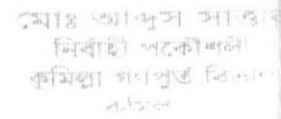 মোঃ আব্দুস সাত্তার
নির্বাহী প্রকৌশলী
কুমিল্লা গণপূর্ত বিভাগ
কুমিল্লা